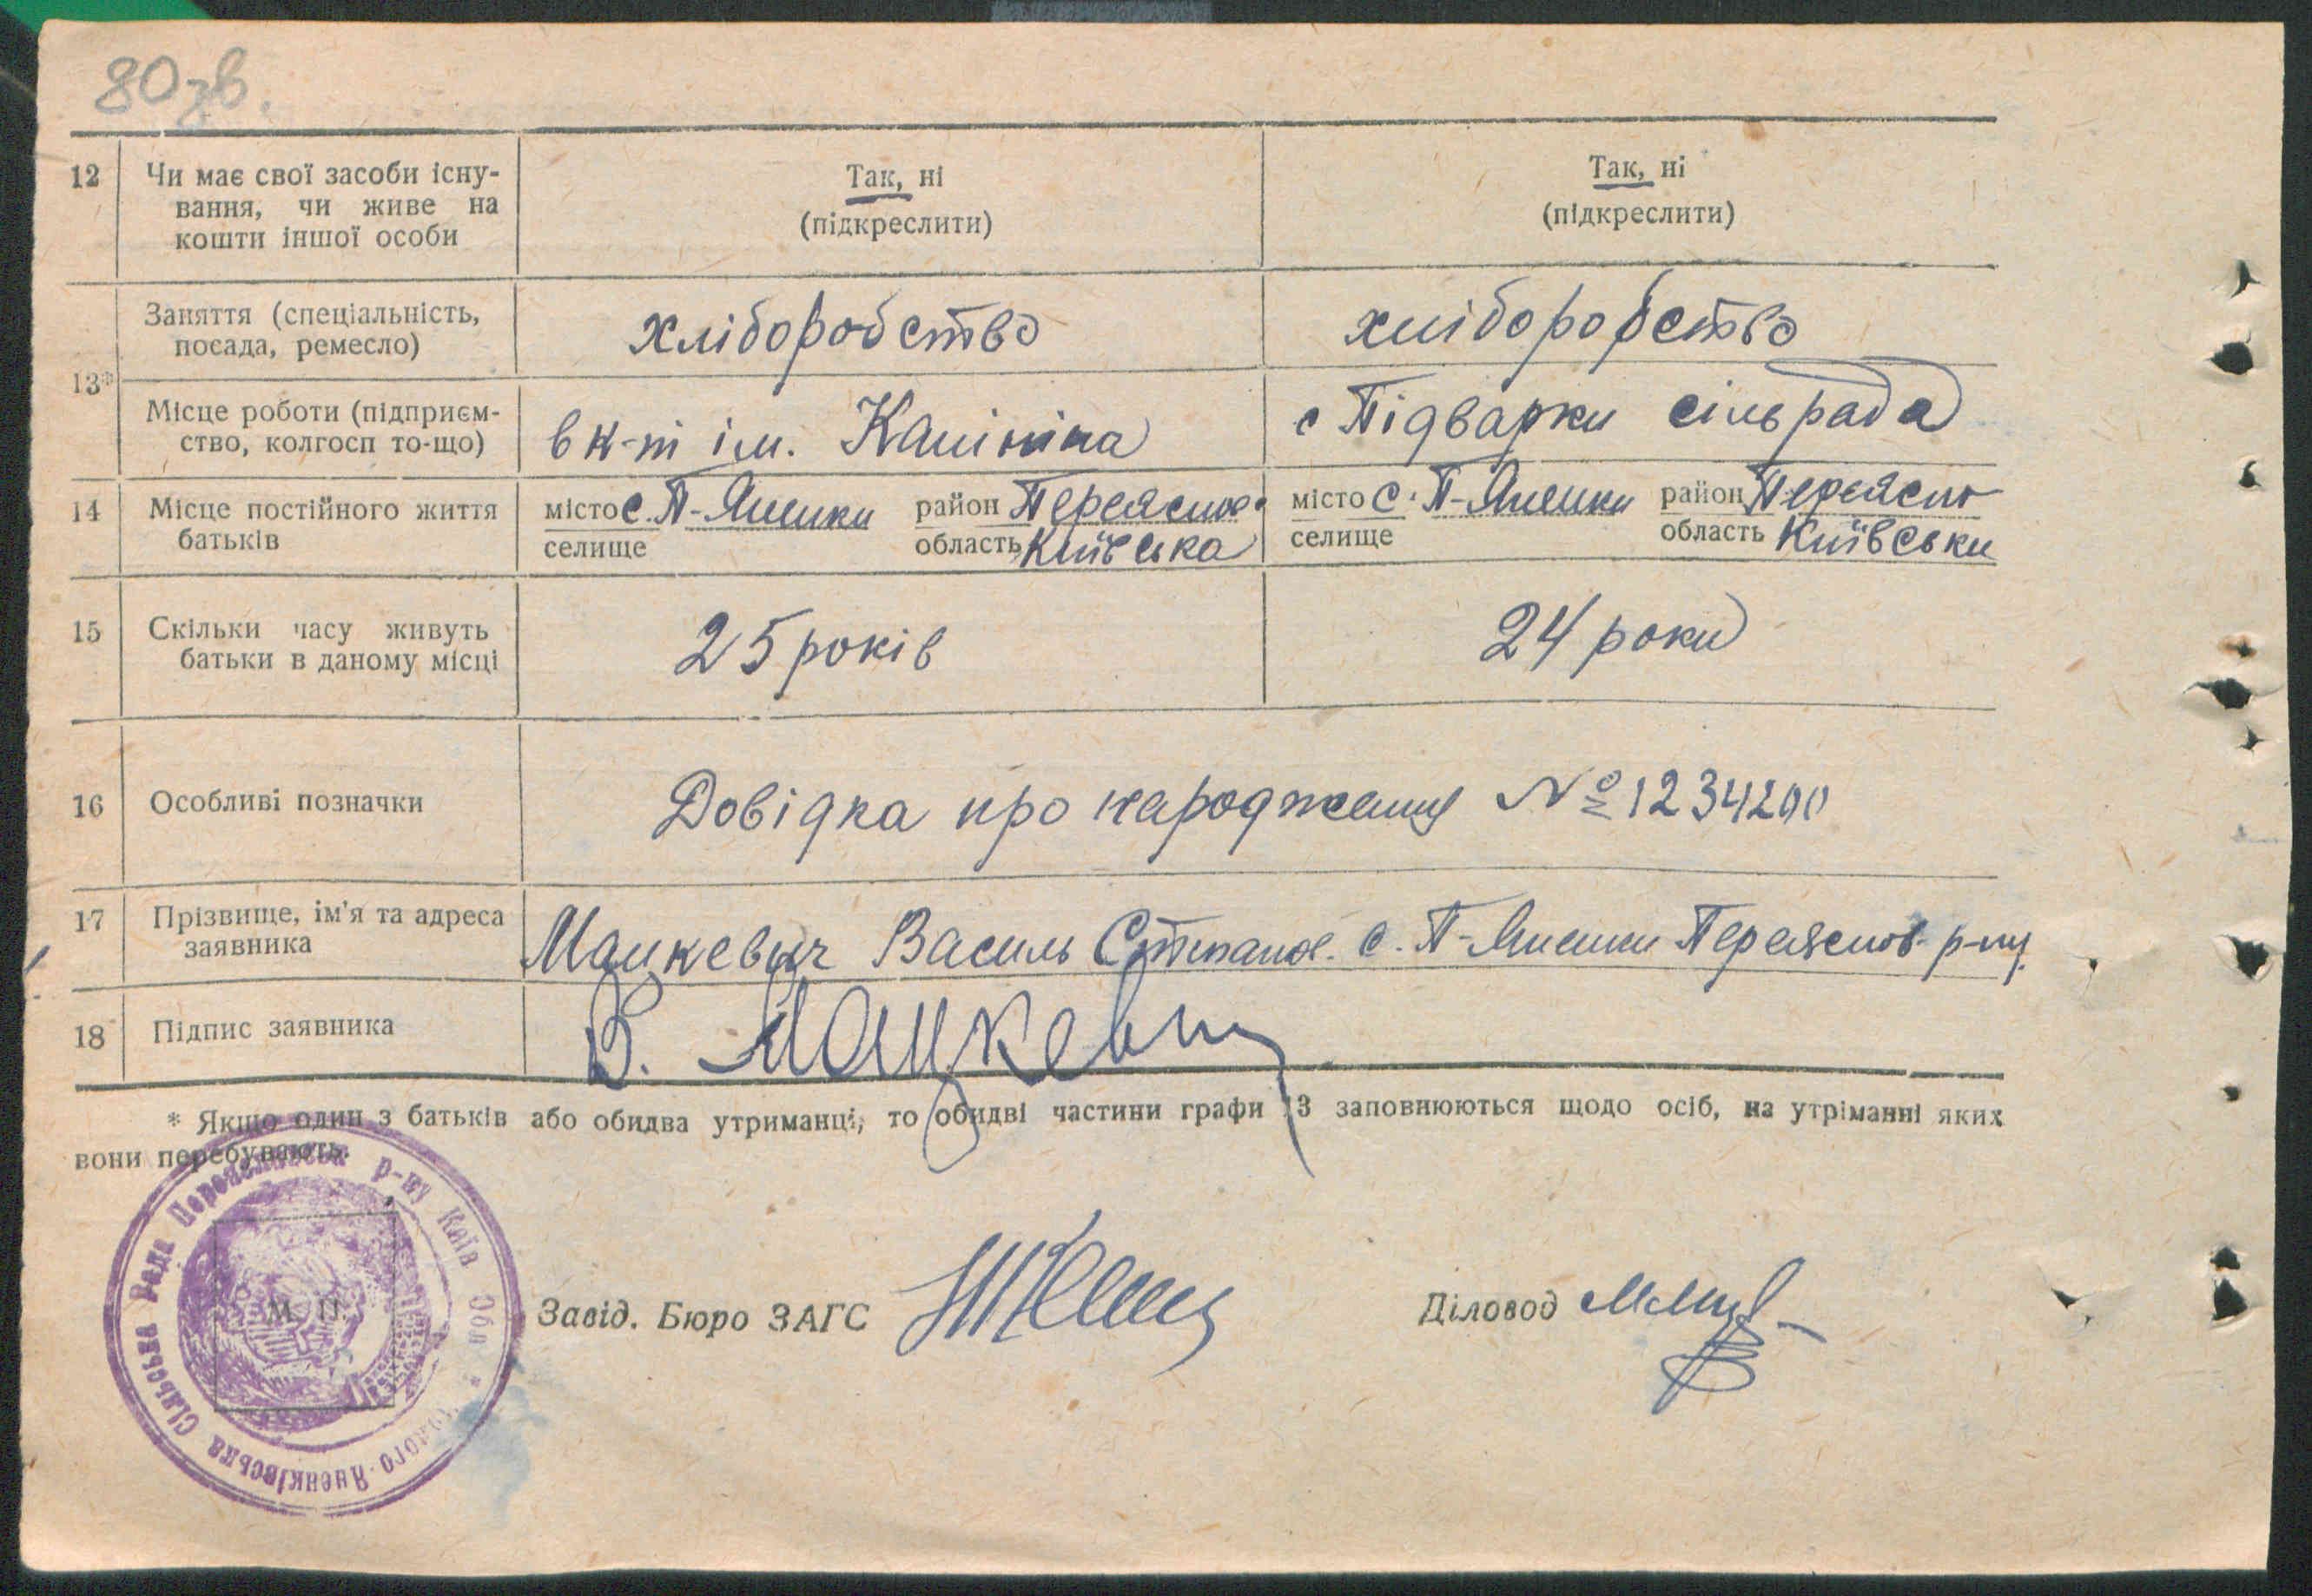 80зв.
12 Чи має свої засоби існу- Так, ні Так, ні
вання, чи живе на (підкреслити) (підкреслити)
кошти іншої особи
13* Заняття (спеціальність, хліборобство хліборобство
посада, ремесло)
Місце роботи (підприєм- в к-пі ім. Калініна с Підварки сільрада
ство, колгосп то-що)
14 Місце постійного життя місто с. П-Яненки район Переяслов. місто с. П-Яненки район Переясло
батьків селище область Київська селище область Київськи
15 Скільки часу живуть 25 років 24 роки
батьки в даному місці
16 Особливі позначки Довідка про народження № 1234200
17 Прізвище, ім'я та адреса Мацкевич Василь Степанов. с. П-Яненки Переяслов- р-ну
заявника
18 Підпис заявника В. Мацкевич
* Якщо один з батьків або обидва утриманці, то обидві частини графи 13 заповнюються щодо осіб, на утріманні яких
вони перебувають.
Сільська Рада Переяславськ р-ну Київ Обл *
Яненківська
М. П.
Завід. Бюро ЗАГС
Діловод